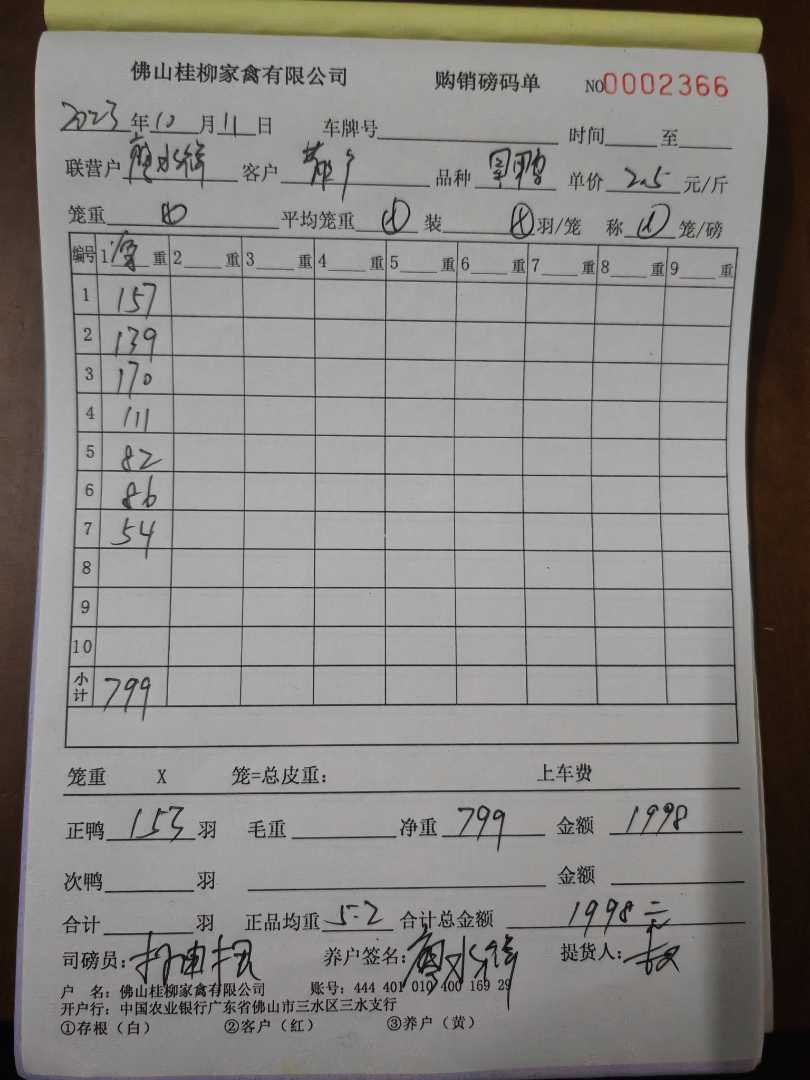 佛山桂柳家禽有限公司 购销磅码单 NO0002366
2023年10月11日 车牌号 时间 至
联营户 客户 品种 单价 2.5 元/斤
笼重 平均笼重 装 羽/笼 称 笼/磅
编号 1 重 2 重 3 重 4 重 5 重 6 重 7 重 8 重 9 重
1 157
2 139
3 170
4 111
5 82
6 86
7 54
8
9
10
小计 799
笼重 X 笼=总皮重： 上车费
正鸭 153 羽 毛重 净重 799 金额 1998
次鸭 羽 金额
合计 羽 正品均重 5.2 合计总金额 1998元
司磅员： 养户签名： 提货人：
户 名：佛山桂柳家禽有限公司 账号：444 401 010 400 169 29
开户行：中国农业银行广东省佛山市三水区三水支行
①存根（白） ②客户（红） ③养户（黄）